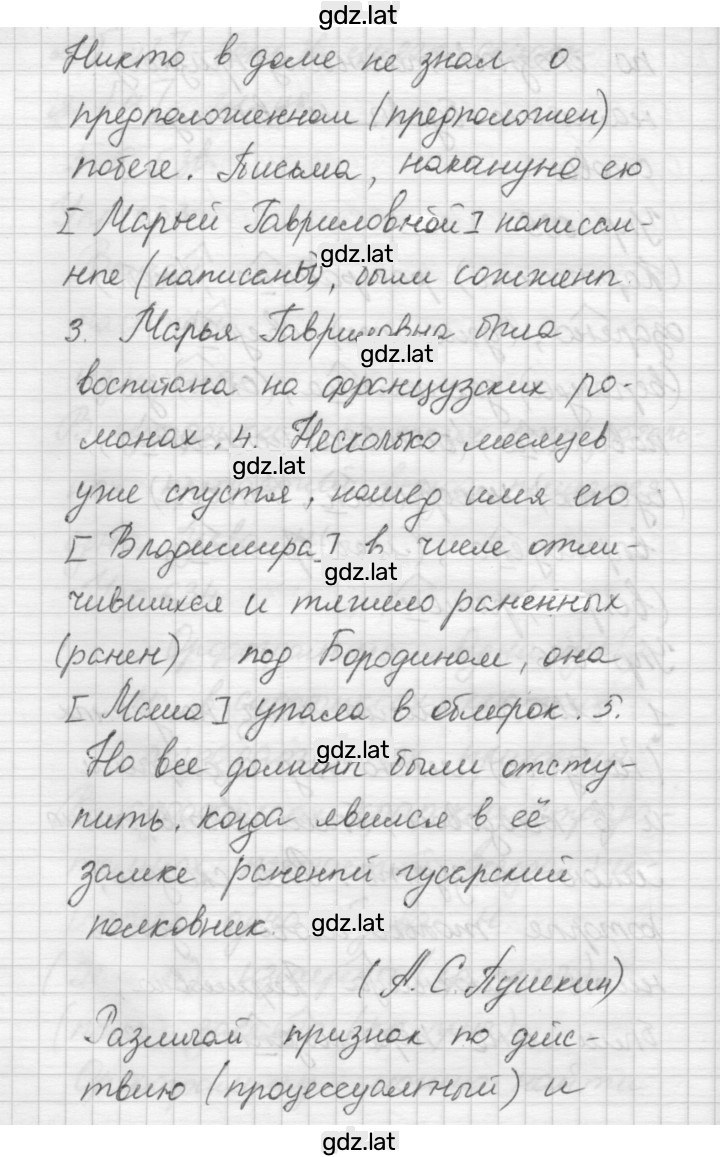 gdz.lat
Никто в доме не знал о
предположенном (предположен)
побеге. Письма, накануне ею
[Марьей Гавриловной] написан-
gdz.lat
ные (написаны), были сожжены.
3. Марья Гавриловна была
gdz.lat
воспитана на французских ро-
манах. 4. Несколько месяцев
gdz.lat
уже спустя, нашед имя его
[Владимира] в числе отли-
gdz.lat
чившихся и тяжело раненных
(ранен) под Бородином, она
[Маша] упала в обморок. 5.
gdz.lat
Но все должны были отсту-
пить, когда явился в её
замке раненый гусарский
полковник.
gdz.lat
(А. С. Пушкин)
Различай признак по дейс-
твию (процессуальный) и
gdz.lat